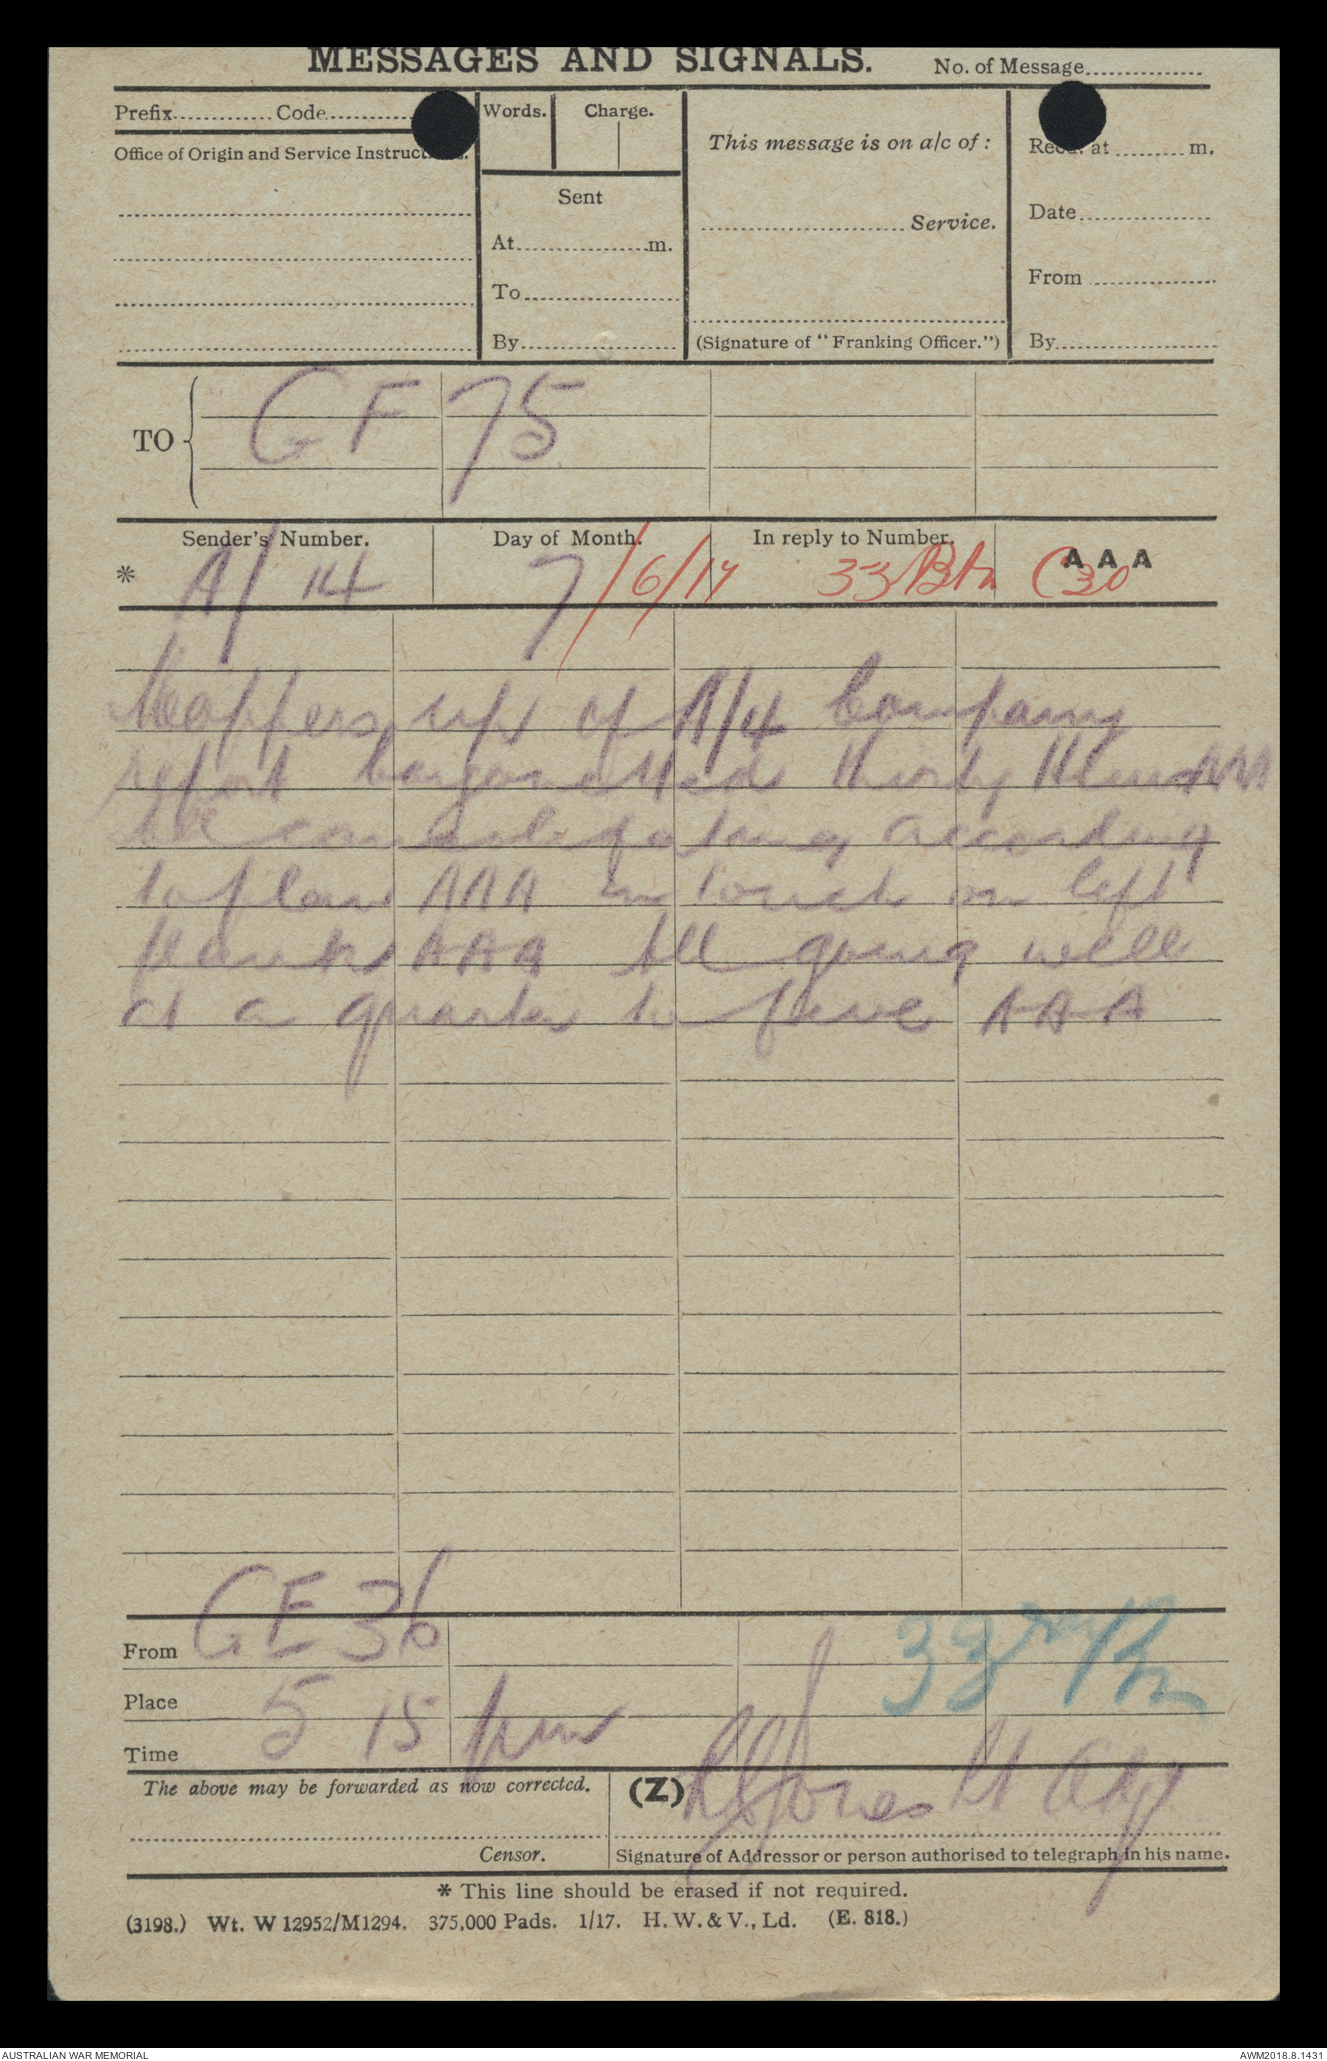 MESSAGES AND SIGNALS.
No. of Message...............
Prefix............. Code............
Words.
Charge.
This message is on a/c of :
Recd. at .......... m.
Office of Origin and Service Instructions.
Sent
At..................m.
To....................
By....................
....................... Service.
(Signature of "Franking Officer.")
Date.................
From ................
By....................
TO
GF 75
Sender's Number.
Day of Month.
In reply to Number.
AAA
* A/14
7/6/17
33 Btn C30
Moppers up of A/4 Company
report bayonetted thirty Huns AAA
All consolidating according
to plan AAA In touch on left
flank AAA All going well
at a quarter to five AAA
GE 36
From
Place
Time
33rd Bn
5 15 pm
The above may be forwarded as now corrected.
(Z)
Jones Lt Adjt
Censor.
Signature of Addressor or person authorised to telegraph in his name.
* This line should be erased if not required.
(3198.) Wt. W 12952/M1294. 375,000 Pads. 1/17. H. W. & V., Ld. (E. 818.)
AUSTRALIAN WAR MEMORIAL
AWM2018.8.1431